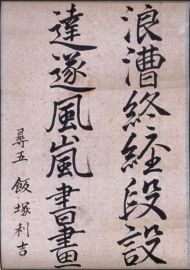 浪漕終経段設
達遂風嵐書畫
尋五 飯塚利吉